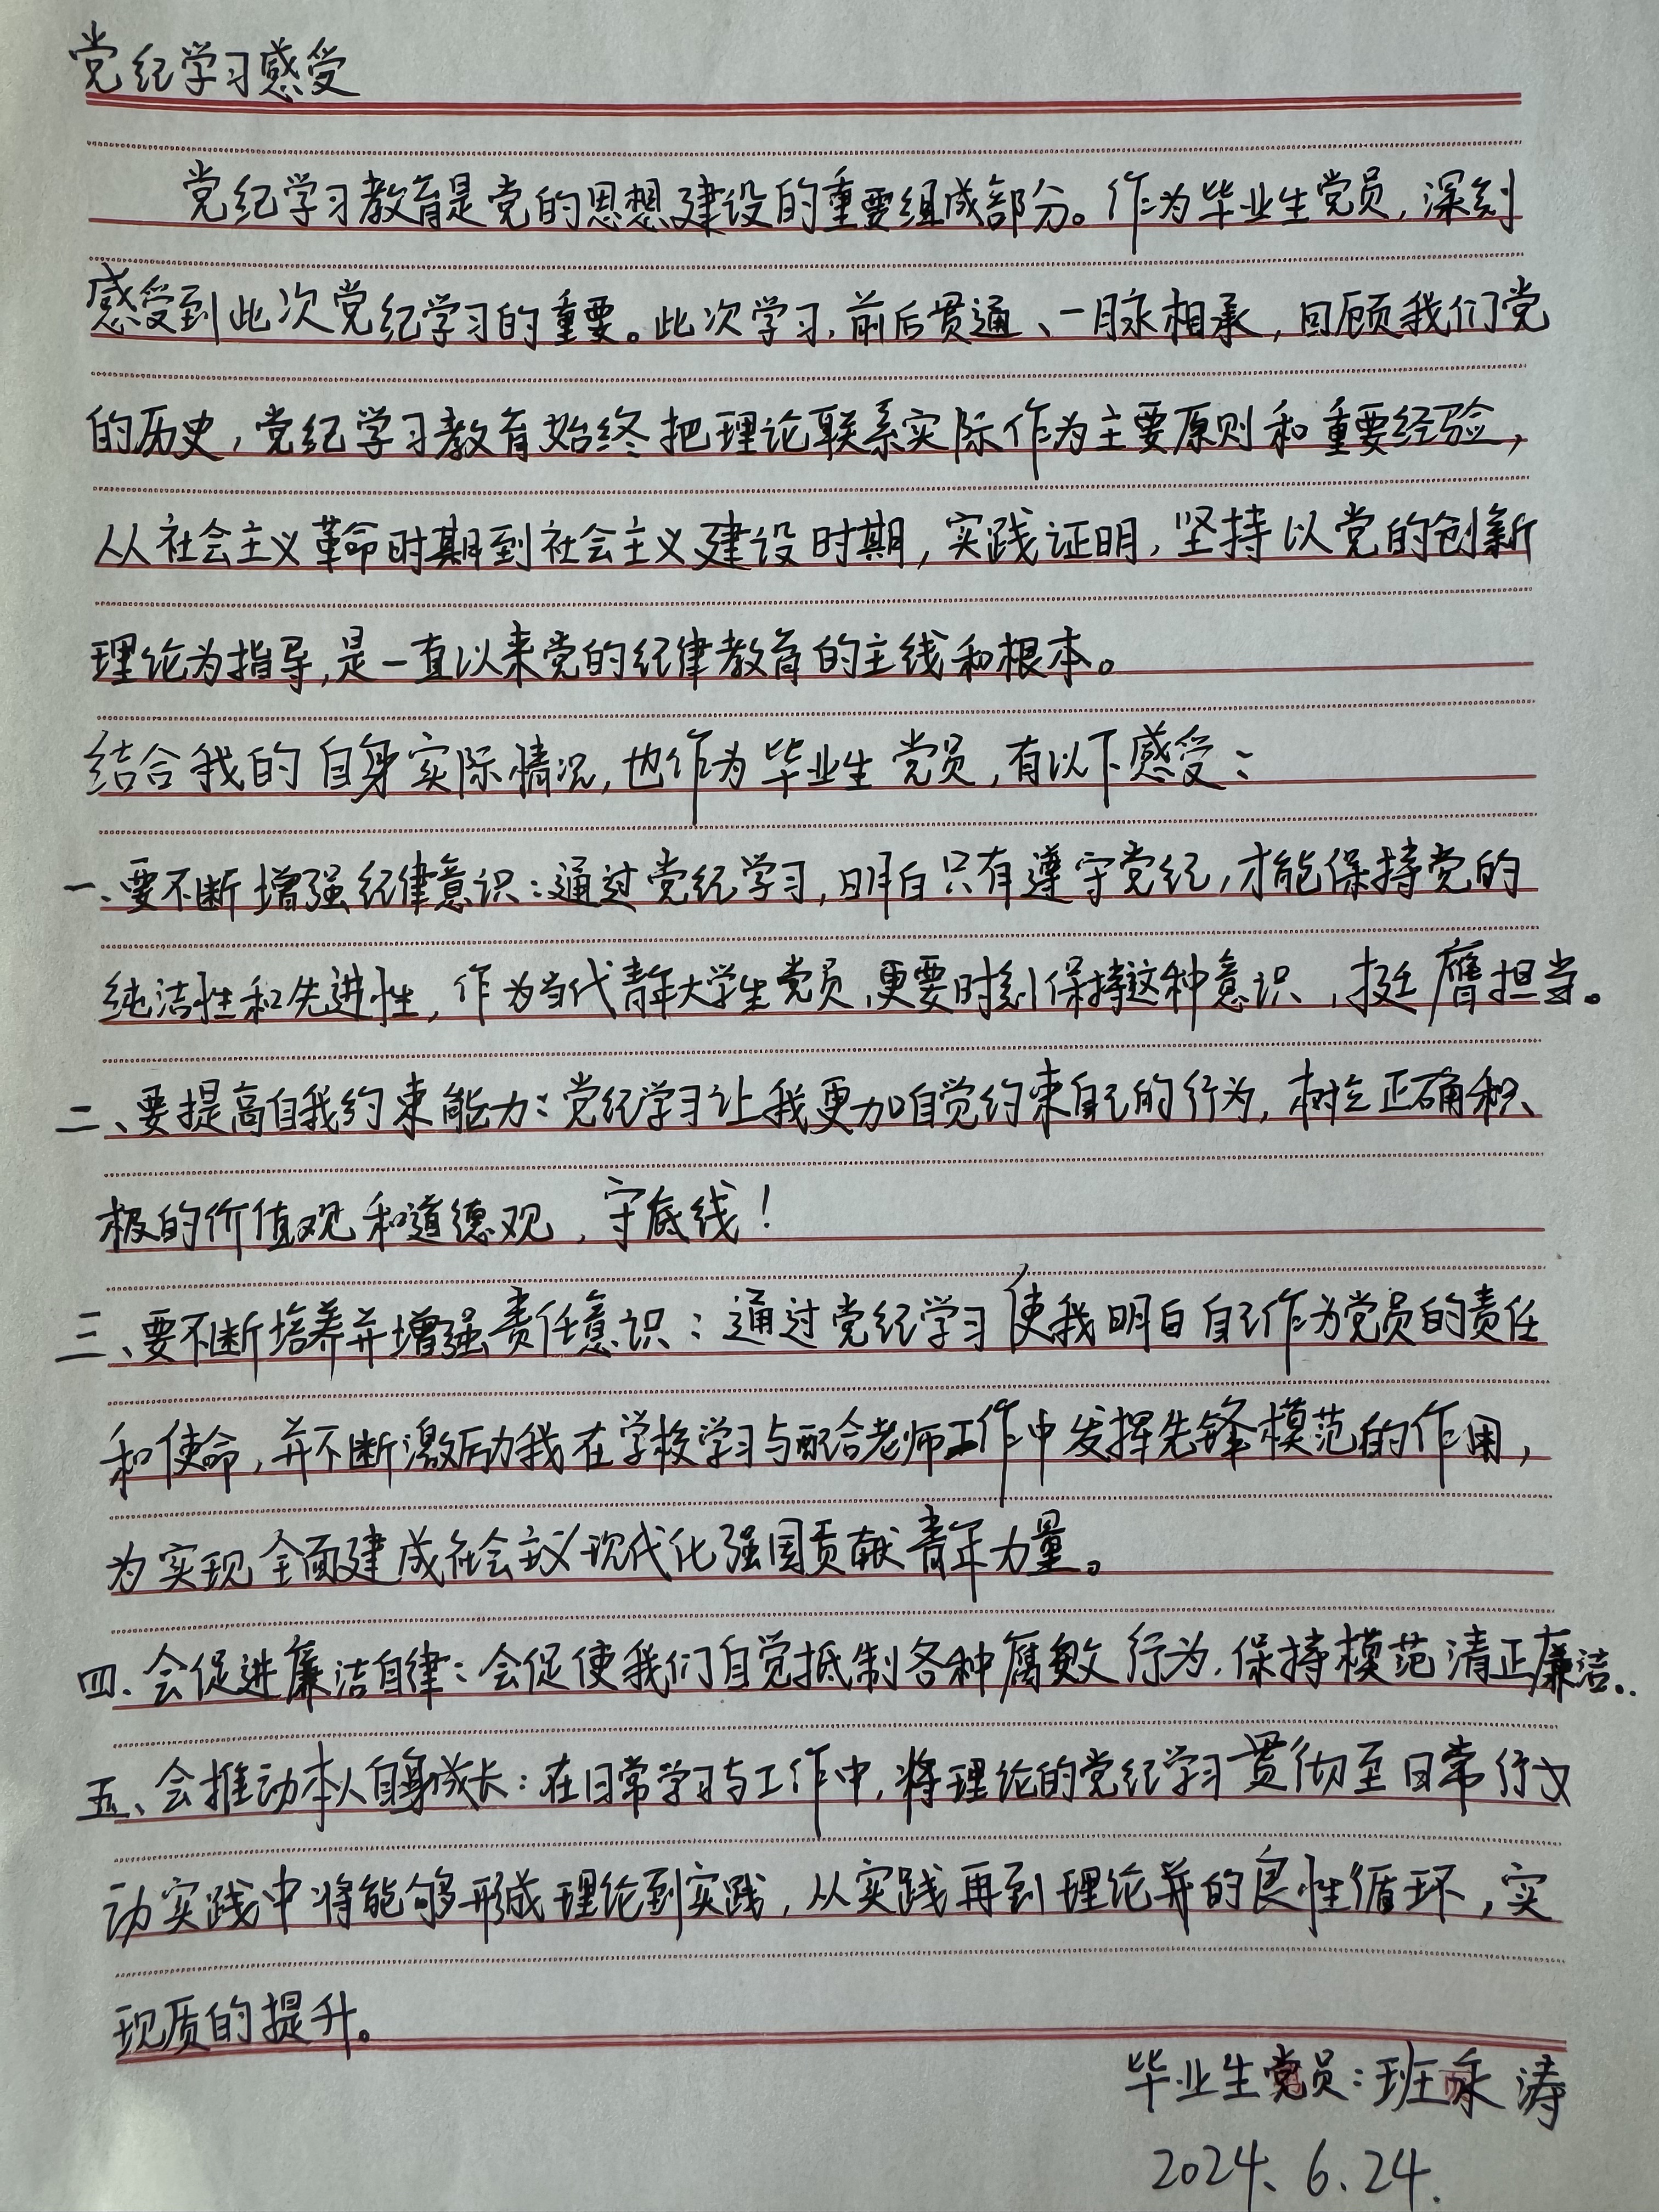 党纪学习感受
党纪学习教育是党的思想建设的重要组成部分。作为毕业生党员,深刻
感受到此次党纪学习的重要。此次学习,前后贯通、一脉相承,回顾我们党
的历史,党纪学习教育始终把理论联系实际作为主要原则和重要经验,
从社会主义革命时期到社会主义建设时期,实践证明,坚持以党的创新
理论为指导,是一直以来党的纪律教育的主线和根本。
结合我的自身实际情况,也作为毕业生党员,有以下感受:
一、要不断增强纪律意识:通过党纪学习,明白只有遵守党纪,才能保持党的
纯洁性和先进性,作为当代青年大学生党员,更要时刻保持这种意识,挺膺担当。
二、要提高自我约束能力:党纪学习让我更加自觉约束自己的行为,树立正确积
极的价值观和道德观,守底线!
三、要不断培养并增强责任意识:通过党纪学习使我明白自己作为党员的责任
和使命,并不断激励我在学校学习与配合老师工作中发挥先锋模范的作用,
为实现全面建成社会主义现代化强国贡献青年力量。
四、会促进廉洁自律:会促使我们自觉抵制各种腐败行为,保持模范清正廉洁..
五、会推动本人自身成长:在日常学习与工作中,将理论的党纪学习贯彻至日常行
动实践中将能够形成理论到实践,从实践再到理论并的良性循环,实
现质的提升。
毕业生党员:班永涛
2024.6.24.